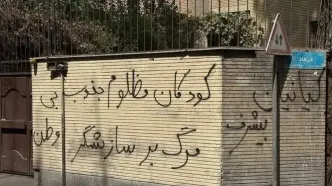 کودکان مظلوم جنوب بی وطن
مرگ بر سازشگر
کیانیان
بیشرف